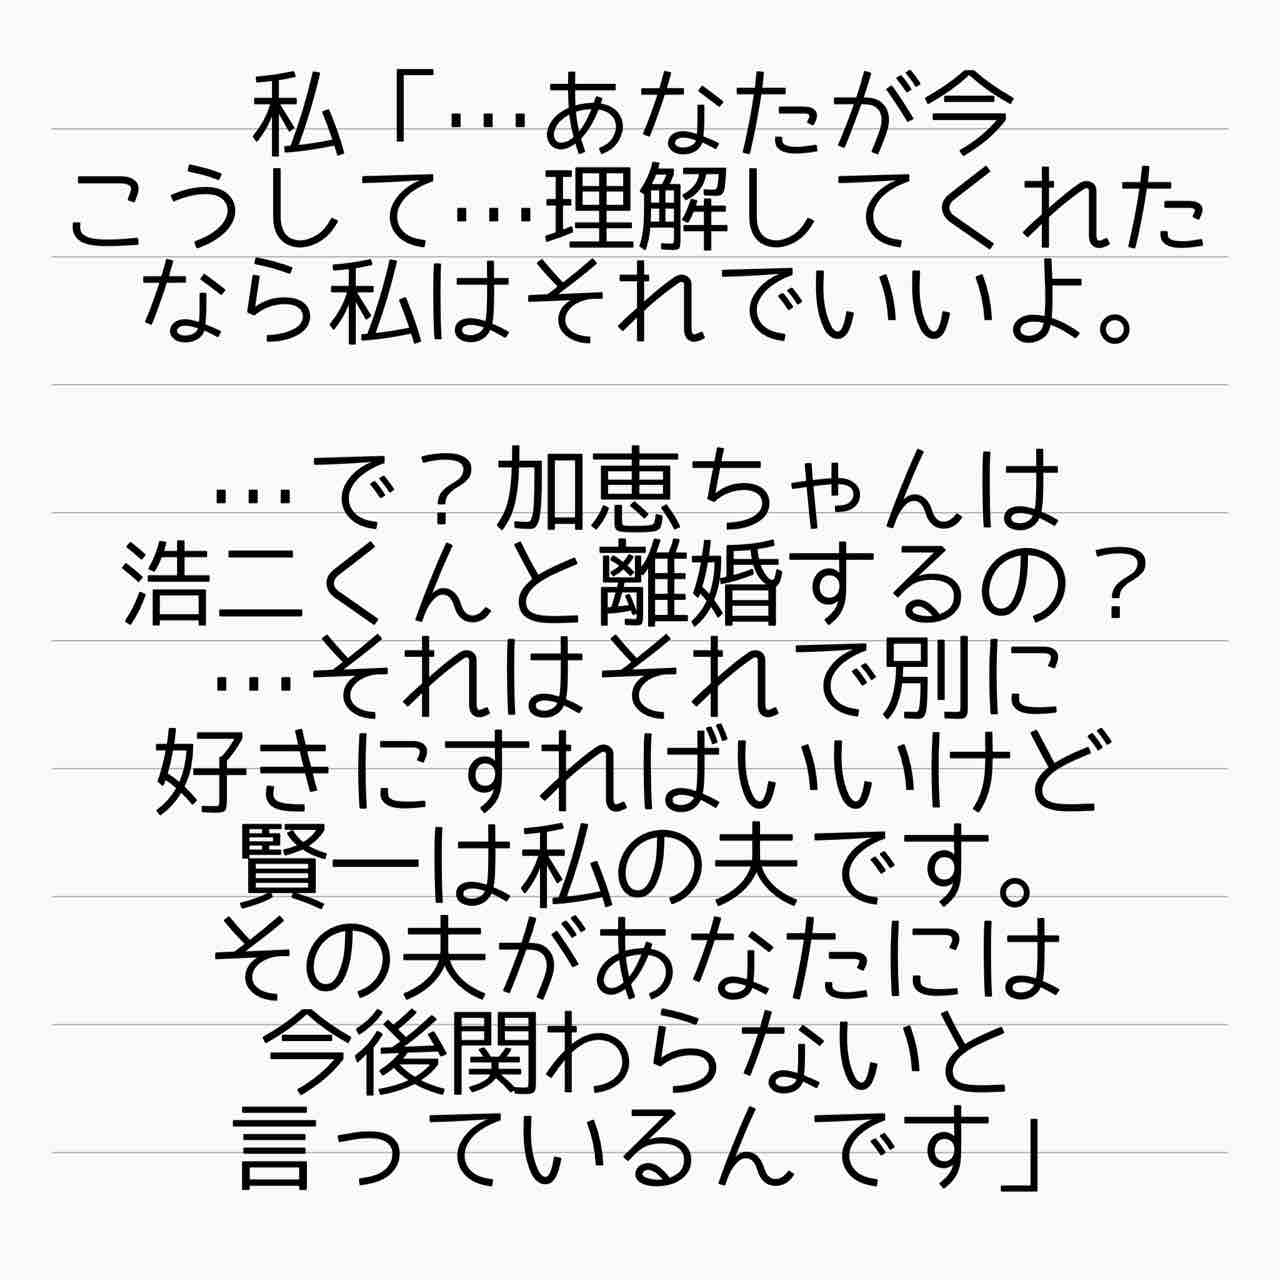 私「…あなたが今
こうして…理解してくれた
なら私はそれでいいよ。
…で？加恵ちゃんは
浩二くんと離婚するの？
…それはそれで別に
好きにすればいいけど
賢一は私の夫です。
その夫があなたには
今後関わらないと
言っているんです」